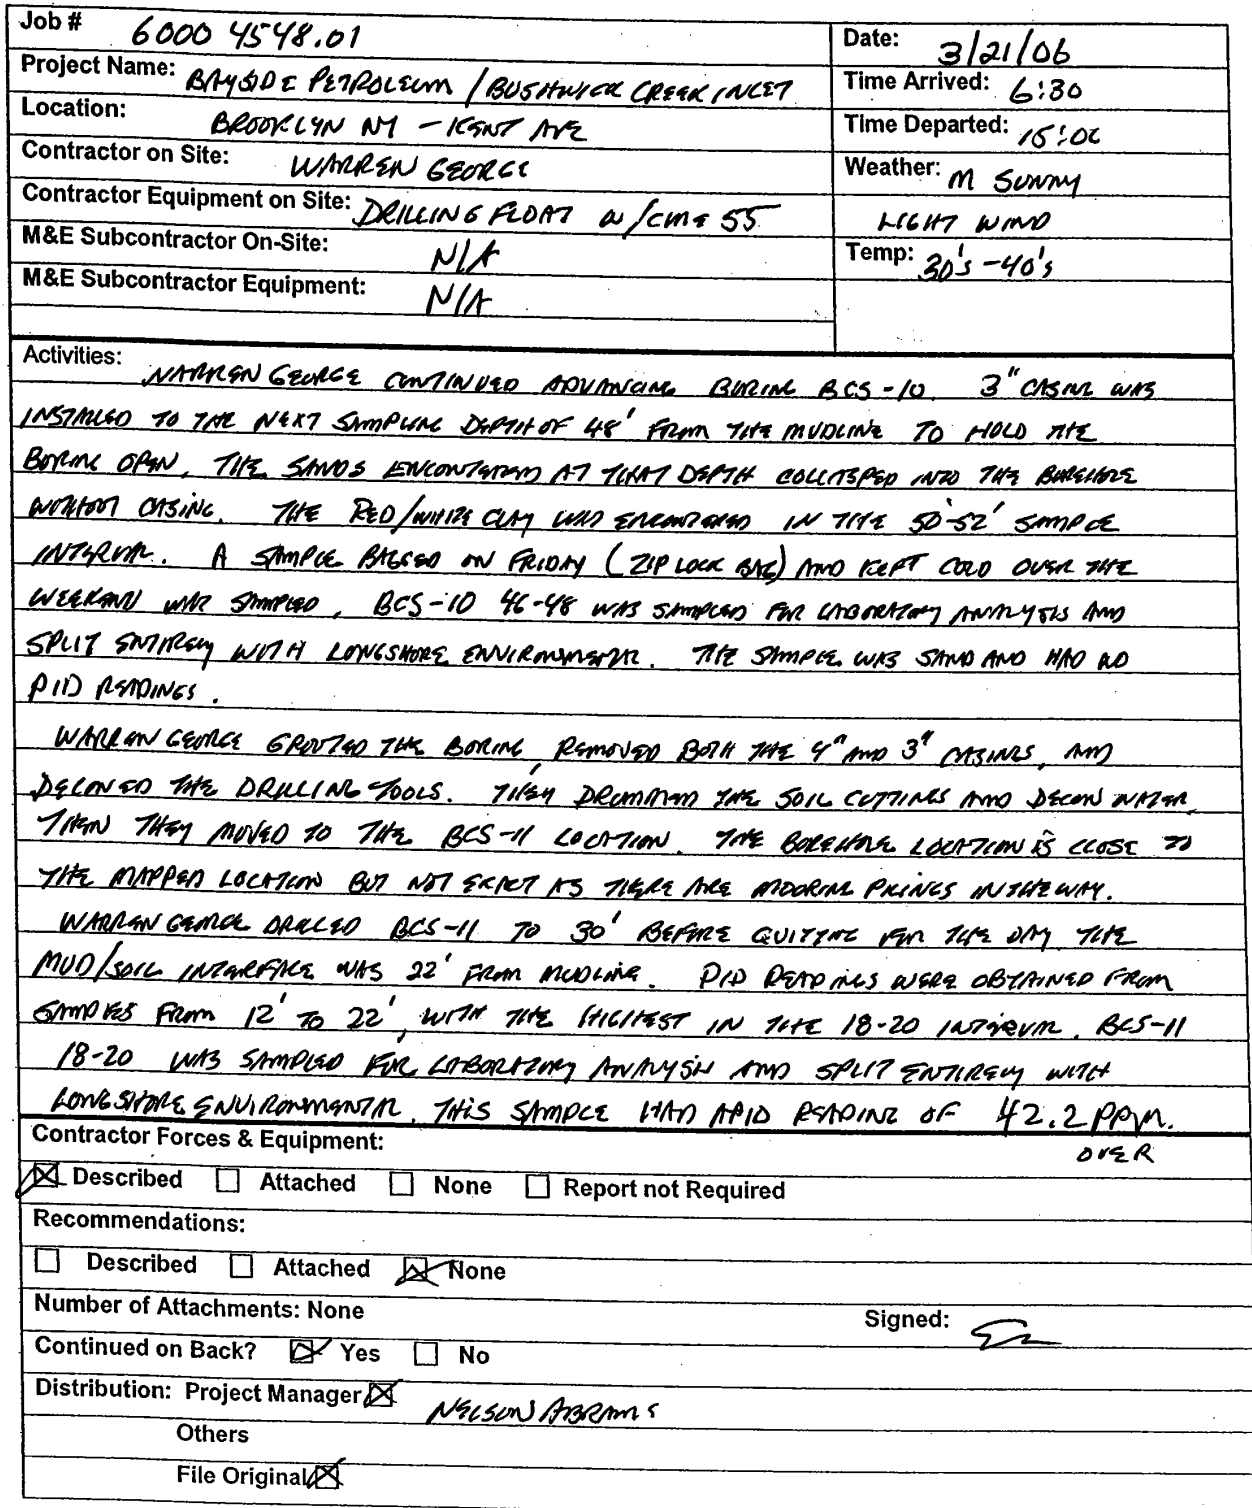 Job # 6000 4548.01
Date: 3/21/06
Project Name: BAYSIDE PETROLEUM / BUSHWICK CREEK INLET
Time Arrived: 6:30
Location: BROOKLYN NY - KENT AVE
Time Departed: 15:00
Contractor on Site: WARREN GEORGE
Weather: M SUNNY
Contractor Equipment on Site: DRILLING FLOAT W/CME 55
LIGHT WIND
M&E Subcontractor On-Site: N/A
Temp: 30's-40's
M&E Subcontractor Equipment: N/A
Activities: WARREN GEORGE CONTINUED ADVANCING BORING BCS-10. 3" CASING WAS
INSTALLED TO THE NEXT SAMPLING DEPTH OF 48' FROM THE MUDLINE TO HOLD THE
BORING OPEN, THE SANDS ENCONTERED AT THAT DEPTH COLLASPED INTO THE BOREHOLE
WITHOUT CASING. THE RED/WHITE CLAY WAS ENCONTERED IN THE 50'-52' SAMPLE
INTERVAL. A SAMPLE BAGGED ON FRIDAY (ZIP LOCK BAG) AND KEPT COLD OVER THE
WEEKEND WAS SAMPLED, BCS-10 46-48 WAS SAMPLED FOR LABORATORY ANALYSIS AND
SPLIT ENTIRELY WITH LONGSHORE ENVIRONMENTAL. THE SAMPLE WAS SAND AND HAD NO
PID READINGS.
WARREN GEORGE GROUTED THE BORING, REMOVED BOTH THE 4" AND 3" CASINGS, AND
DECONED THE DRILLING TOOLS. THEY DRUMMED THE SOIL CUTTINGS AND DECON WATER.
THEN THEY MOVED TO THE BCS-11 LOCATION. THE BOREHOLE LOCATION IS CLOSE TO
THE MAPPED LOCATION BUT NOT EXACT AS THERE ARE MOORING PILINGS IN THE WAY.
WARREN GEORGE DRILLED BCS-11 TO 30' BEFORE QUITTING FOR THE DAY. THE
MUD/SOIL INTERFACE WAS 22' FROM MUDLINE. PID READINGS WERE OBTAINED FROM
SAMPLES FROM 12' TO 22', WITH THE HIGHEST IN THE 18-20 INTERVAL. BCS-11
18-20 WAS SAMPLED FOR LABORATORY ANALYSIS AND SPLIT ENTIRELY WITH
LONGSHORE ENVIRONMENTAL. THIS SAMPLE HAD A PID READING OF 42.2 PPM.
OVER
Contractor Forces & Equipment:
Described Attached None Report not Required
Recommendations:
Described Attached None
Number of Attachments: None
Signed:
Continued on Back? Yes No
Distribution: Project Manager NELSON ABRAMS
Others
File Original